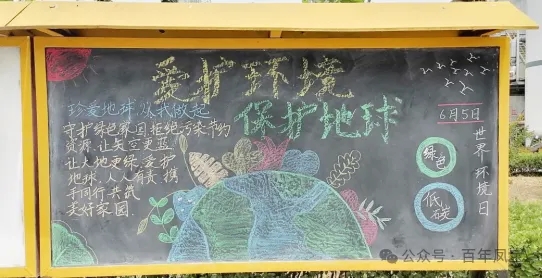 爱护环境
保护地球
珍爱地球 从我做起
守护绿色家园拒绝污染节约
资源,让天空更蓝
让大地更绿,爱护
地球,人人有责,携
手同行,共筑
美好家园.
6月5日
世界环境日
绿色
低碳
公众号·百年凤